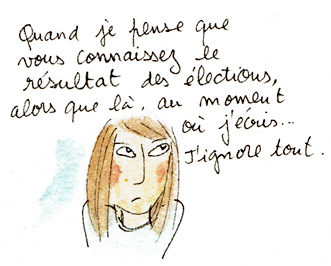 Quand je pense que
vous connaissez le
résultat des élections,
alors que là, au moment
où j'écris...
J'ignore tout.